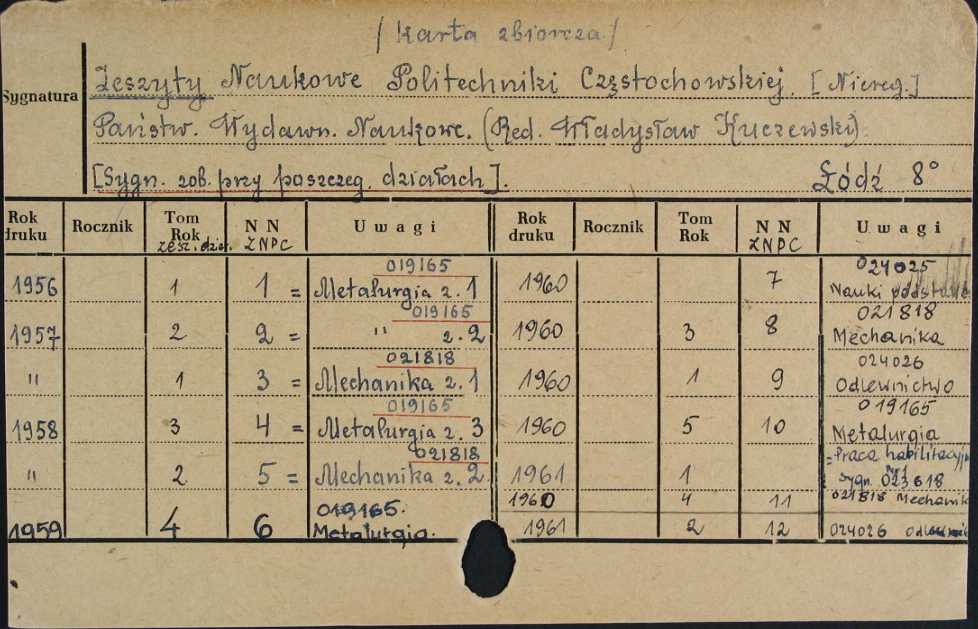 / Karta zbiorcza /
Sygnatura
Zeszyty Naukowe Politechniki Częstochowskiej. [Niereg.]
Państw. Wydawn. Naukowe. (Red. Władysław Kuczewski).
[Sygn. zob. przy poszczeg. działach]. Łódź 8°
Rok druku Rocznik Tom Rok zesz. dzier. N N ZNPC Uwagi Rok druku Rocznik Tom Rok N N ZNPC Uwagi
019165 024025
1956 1 1 = Metalurgia z. 1 1960 7 Nauki
019165 021818
1957 2 2 = " z. 2 1960 3 8 Mechanika
021818 024026
" 1 3 = Mechanika z. 1 1960 1 9 Odlewnictwo
019165 019165
1958 3 4 = Metalurgia z. 3 1960 5 10 Metalurgia
021818 = Praca habilitacyj
" 2 5 = Mechanika z. 2 1961 1 Sygn. 023618
1960 4 11 021818 Mechanik
019165.
1959 4 6 Metalurgia. 1961 2 12 024026